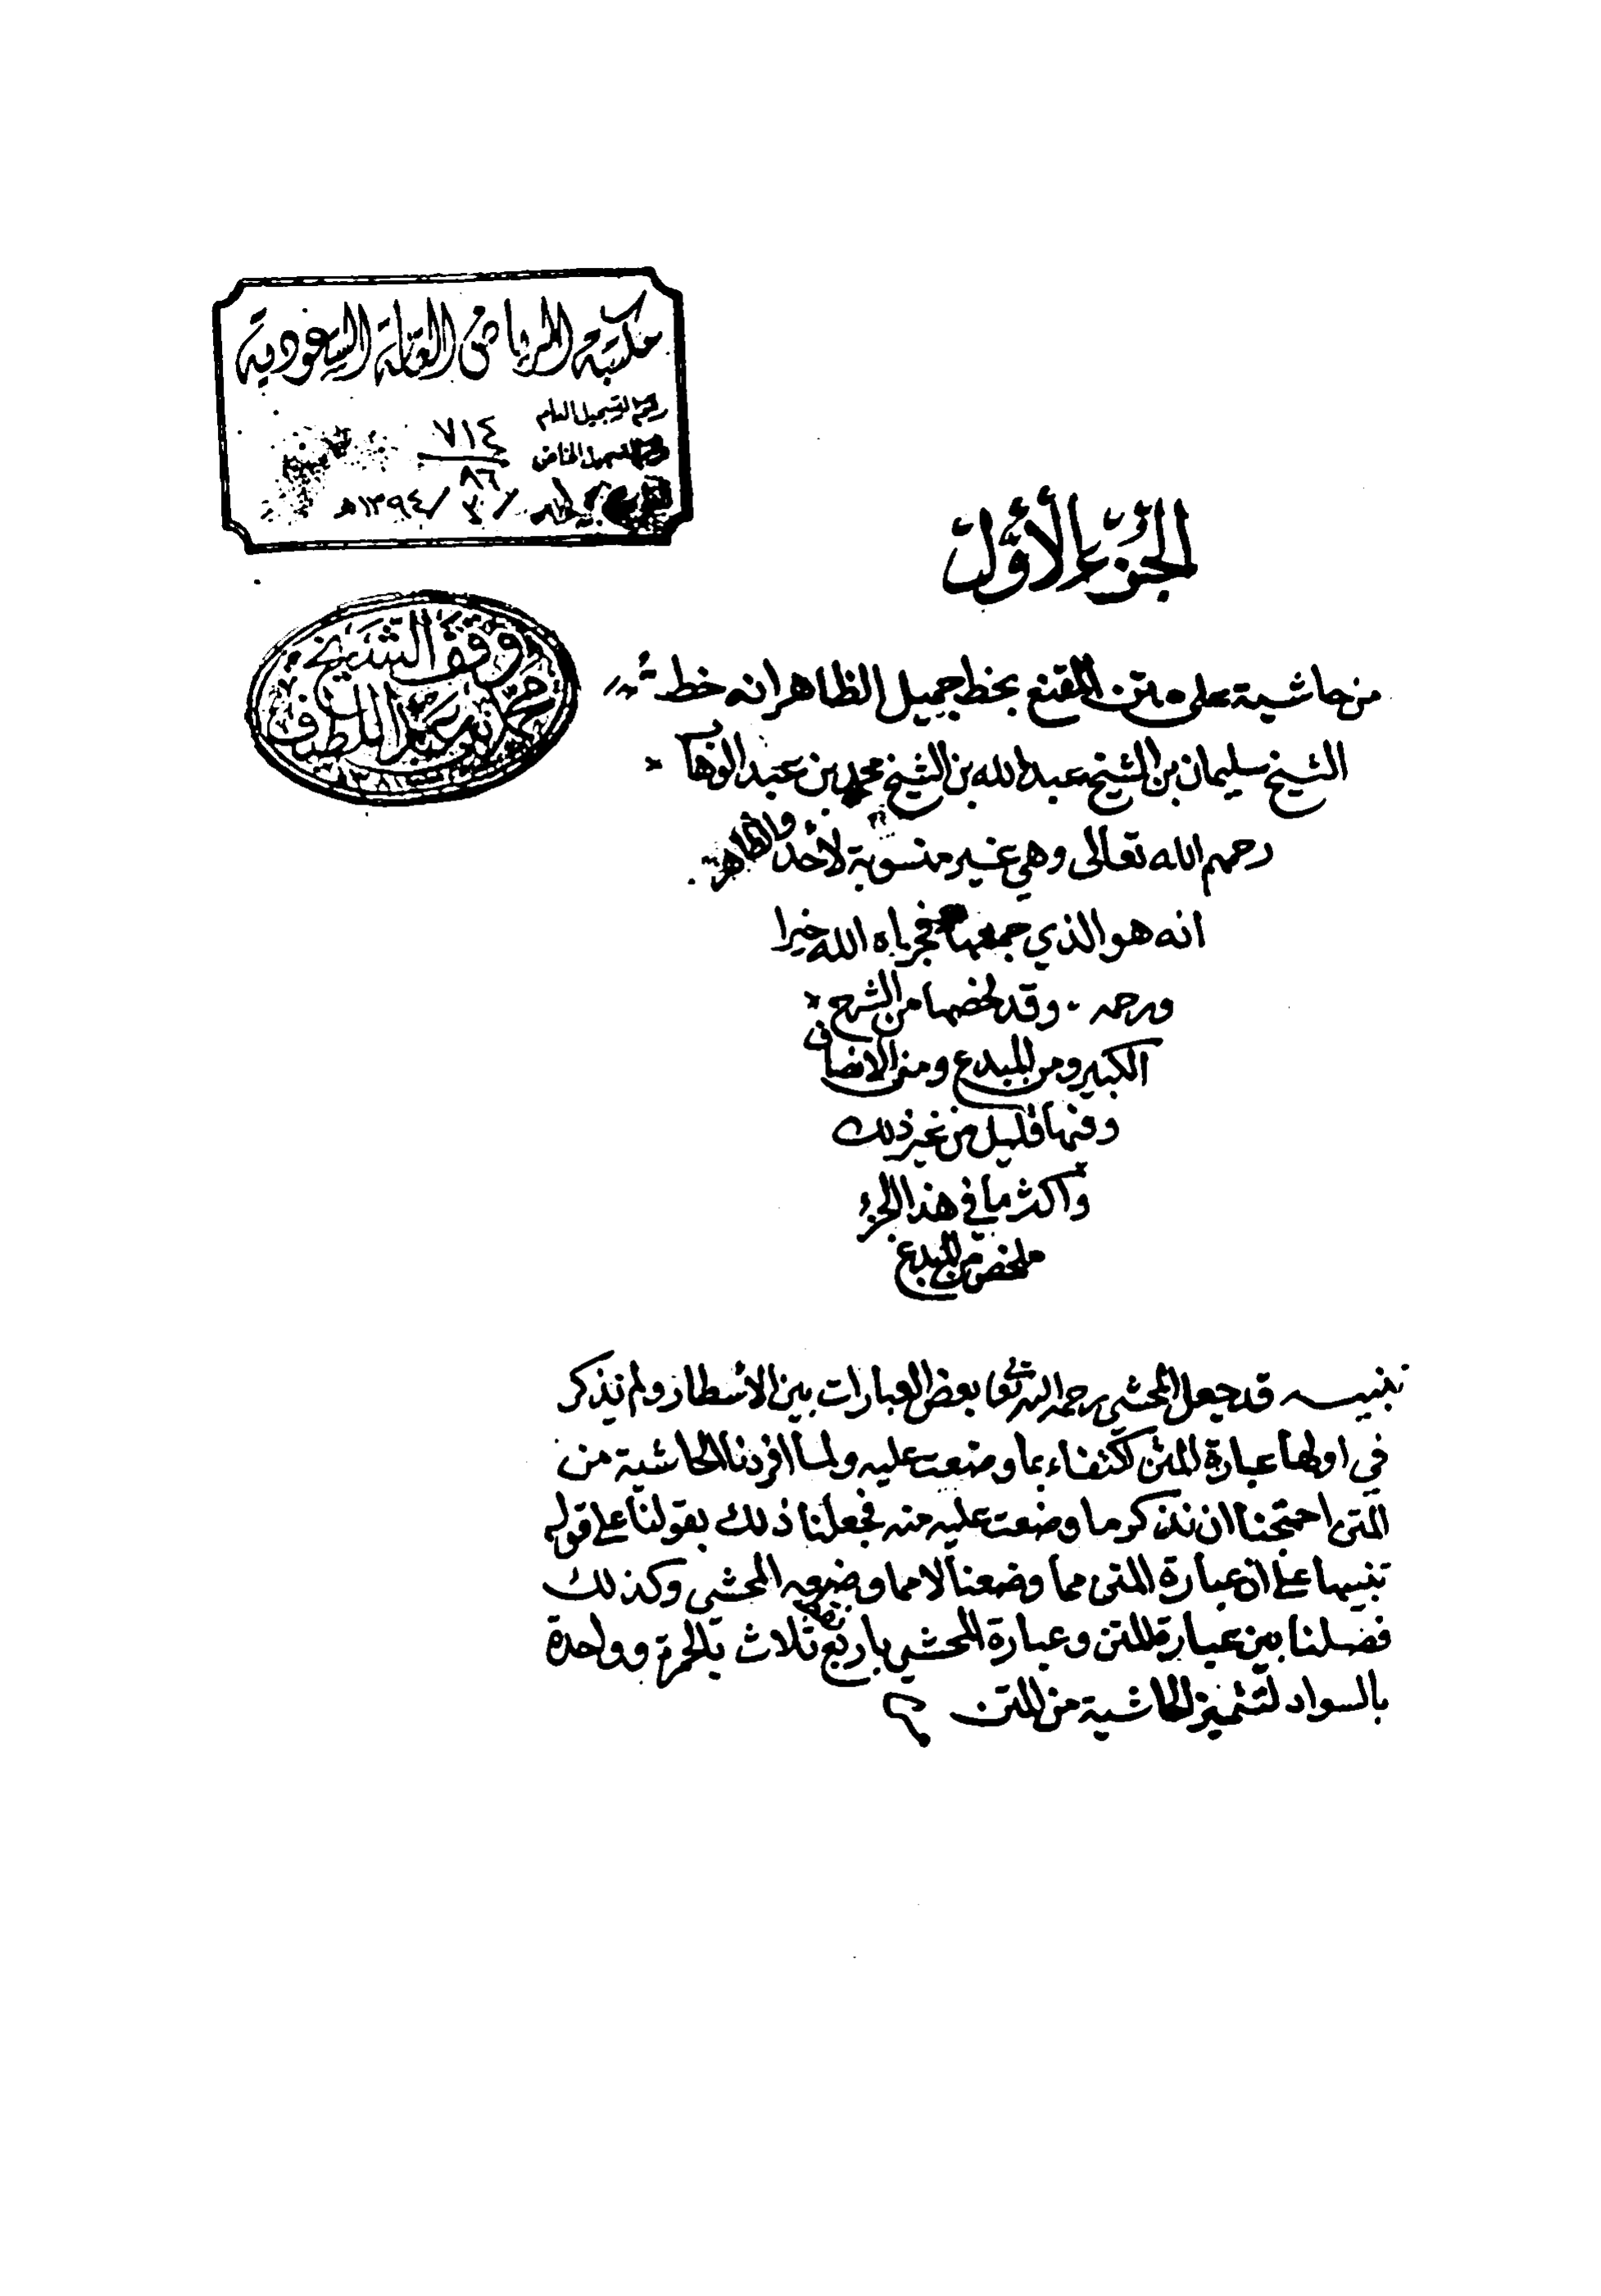 مكتبة الرياض العامة السعودية
رقم التسجيل العام
٧١٤
التسجيل الخاص
٨٦
١٣٩٤هـ
وقف الشيخ
محمد بن عبد اللطيف
١٣٨١
الجزء الأول
من حاشية على متن المقنع بخط جميل الظاهر انه خط
الشيخ سليمان بن الشيخ عبد الله بن الشيخ محمد بن عبد الوهاب
رحمهم الله تعالى وهي غير منسوبة لأحد والظاهر
انه هو الذي جمعها فجزاه الله خيرا
ورحمه ـ وقد لخصها من الشرح
الكبير ومن المبدع ومن الانصاف
وفيها قليل من غير ذلك
وأكثر ما في هذا الجزء
ملخص من المبدع
تنبيه قد جعل المحشي رحمه الله تعا بعض العبارات بين الأسطار ولم يذكر
في اولها عبارة المتن اكتفاء بما وضعت عليه ولما افردنا الحاشية من
المتن احتجنا ان نذكر ما وضعت عليه منه فجعلنا ذلك بقولنا على قوله
تنبيها على ان عبارة المتن مما وضعنا لا مما وضعه المحشي وكذلك
فصلنا بين عبارة المتن وعبارة المحشي باربع نقط ثلاث بالحمرة وواحدة
بالسواد لتتميز الحاشية من المتن